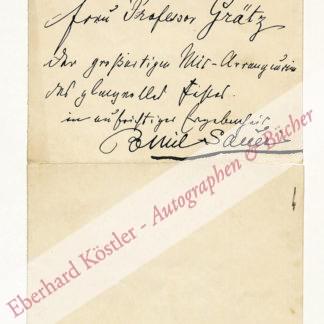 Frau Professor Grätz
der großartigen Mit-Arrangeurin
des glanzvollen Festes
in aufrichtiger Ergebenheit
Emil Sauer
Eberhard Köstler - Autographen & Bücher